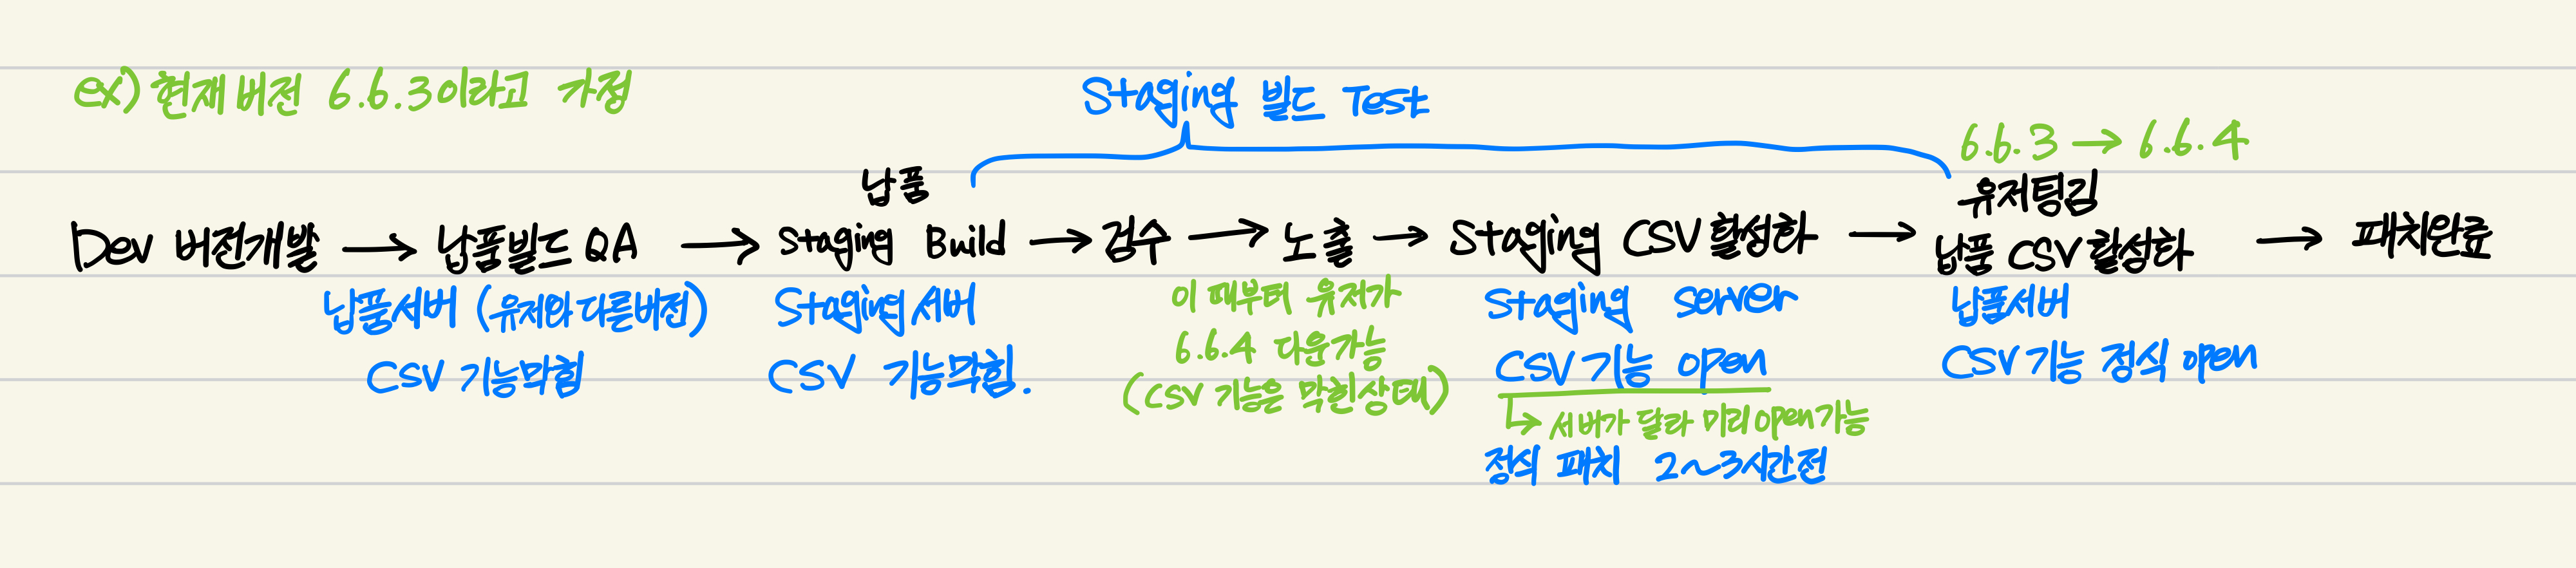 ex) 현재 버전 6.6.3이라고 가정
Staging 빌드 Test
6.6.3 → 6.6.4
납품
유저팅김
Dev 버전개발 → 납품빌드 QA → Staging Build → 검수 → 노출 → Staging CSV 활성화 → 납품 CSV 활성화 → 패치완료
납품서버 (유저와 다른버전)
CSV 기능막힘
Staging 서버
CSV 기능막힘.
이 때부터 유저가
6.6.4 다운가능
(CSV 기능은 막힌상태)
Staging server
CSV 기능 open
↳ 서버가 달라 미리 open 가능
정식 패치 2~3시간전
납품서버
CSV 기능 정식 open